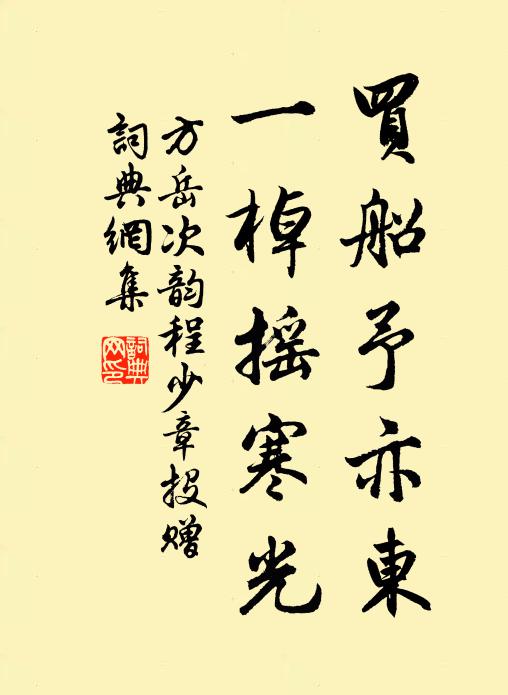 買船予亦東
一棹摇寒光
方岳次韵程少章投贈
詞典網集
詞典網印